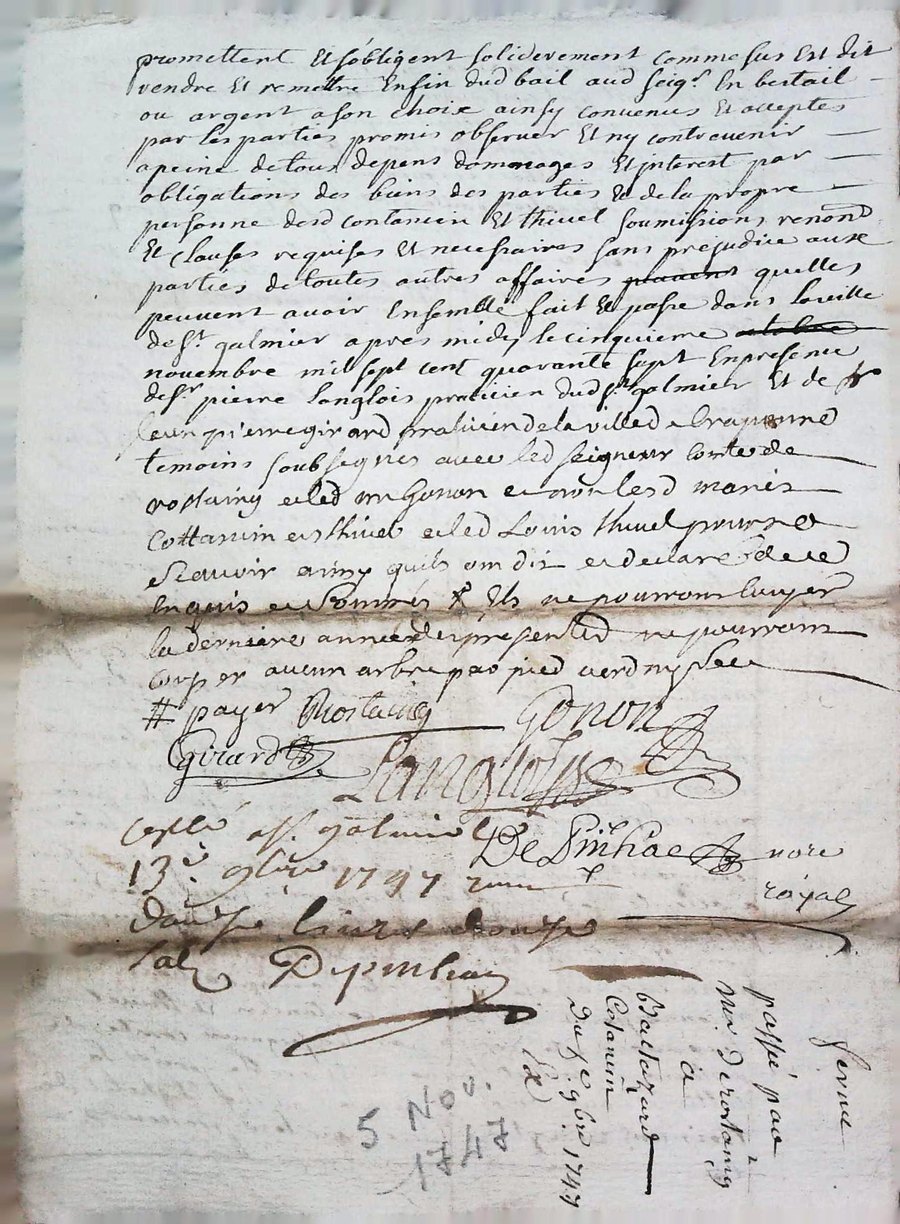 promettent Et sobligent soliderement comme sus Est dit
rendre Et remettre Enfin dud bail aud seigr. En bestail
ou argent a son choix ainsy convenus Et acceptes
par les parties promis observer Et ny contrevenir
a peine de tous depens dommages Et interest par
obligations des biens des parties Et de la propre
personne desd contancin Et thivel soumissions renond
Et clauses requises Et necessaires sans prejudice aux
parties de toutes autres affaires quelles
peuvent avoir Ensemble fait Et passe dans la ville
de st. galmier apres midy le cinquieme
novembre mil sept cent quarante sept En presence
de sr pierre Langlois praticien dud st. galmier Et de sr
pierre girard praticien de la ville de Craponne
temoins soubsegnes avec led seigneur comte de
rostaing et led mr Gonon et non lesd mariés
Cottancin et thivel et led Louis thivel pour ne
scavoir ainsy quils ont dit et declaré de ce
Enquis et sommés # Ils ne pourront
la derniere année du present ne pourront
couper aucun arbre par pied verd ny sec
# payer Rostaing Gonon
Girard Langlois
st. galmier le De Pinhac nore
13e. 9bre 1747 royal
douze livres douze
sols Depinhac
ferme
passé par
Mr. de rostaing
à
Baltazard
Cotancin
Du 5e. 9bre 1747
5 Nov.
1747